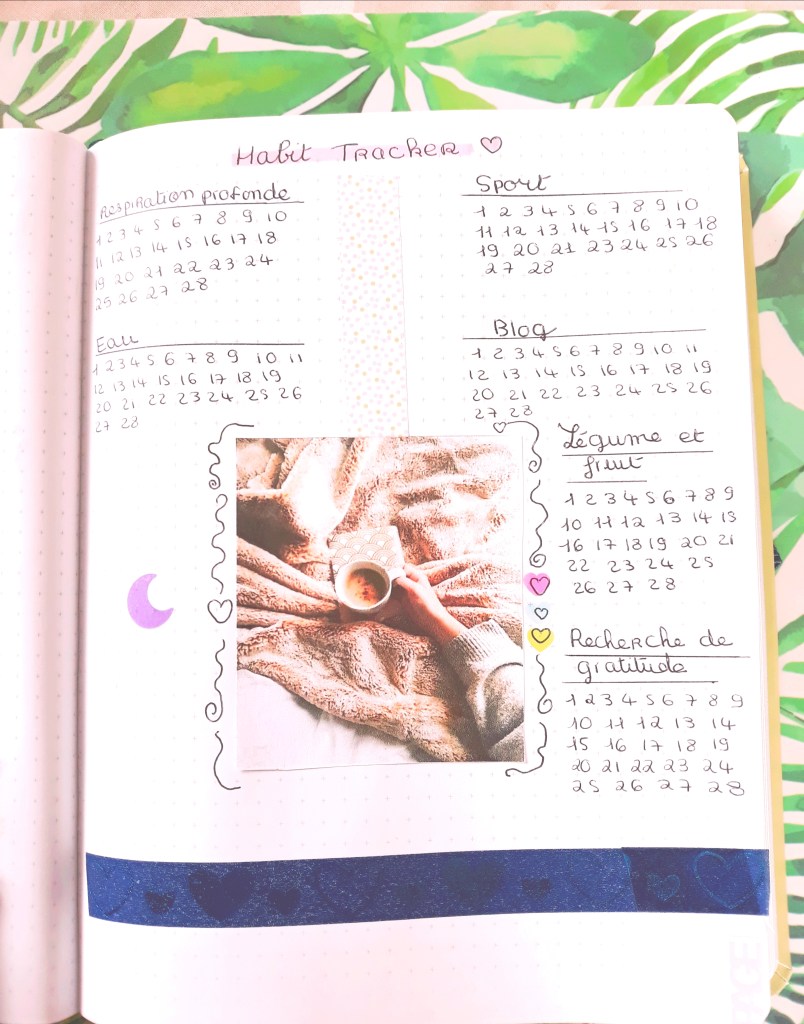 Habit Tracker
Respiration profonde
1 2 3 4 5 6 7 8 9 10
11 12 13 14 15 16 17 18
19 20 21 22 23 24
25 26 27 28
Eau
1 2 3 4 5 6 7 8 9 10 11
12 13 14 15 16 17 18 19
20 21 22 23 24 25 26
27 28
Sport
1 2 3 4 5 6 7 8 9 10
11 12 13 14 15 16 17 18
19 20 21 23 24 25 26
27 28
Blog
1 2 3 4 5 6 7 8 9 10 11
12 13 14 15 16 17 18 19
20 21 22 23 24 25 26
27 28
Légume et
fruit
1 2 3 4 5 6 7 8 9
10 11 12 13 14 15
16 17 18 19 20 21
22 23 24 25
26 27 28
Recherche de
gratitude
1 2 3 4 5 6 7 8 9
10 11 12 13 14
15 16 17 18 19
20 21 22 23 24
25 26 27 28